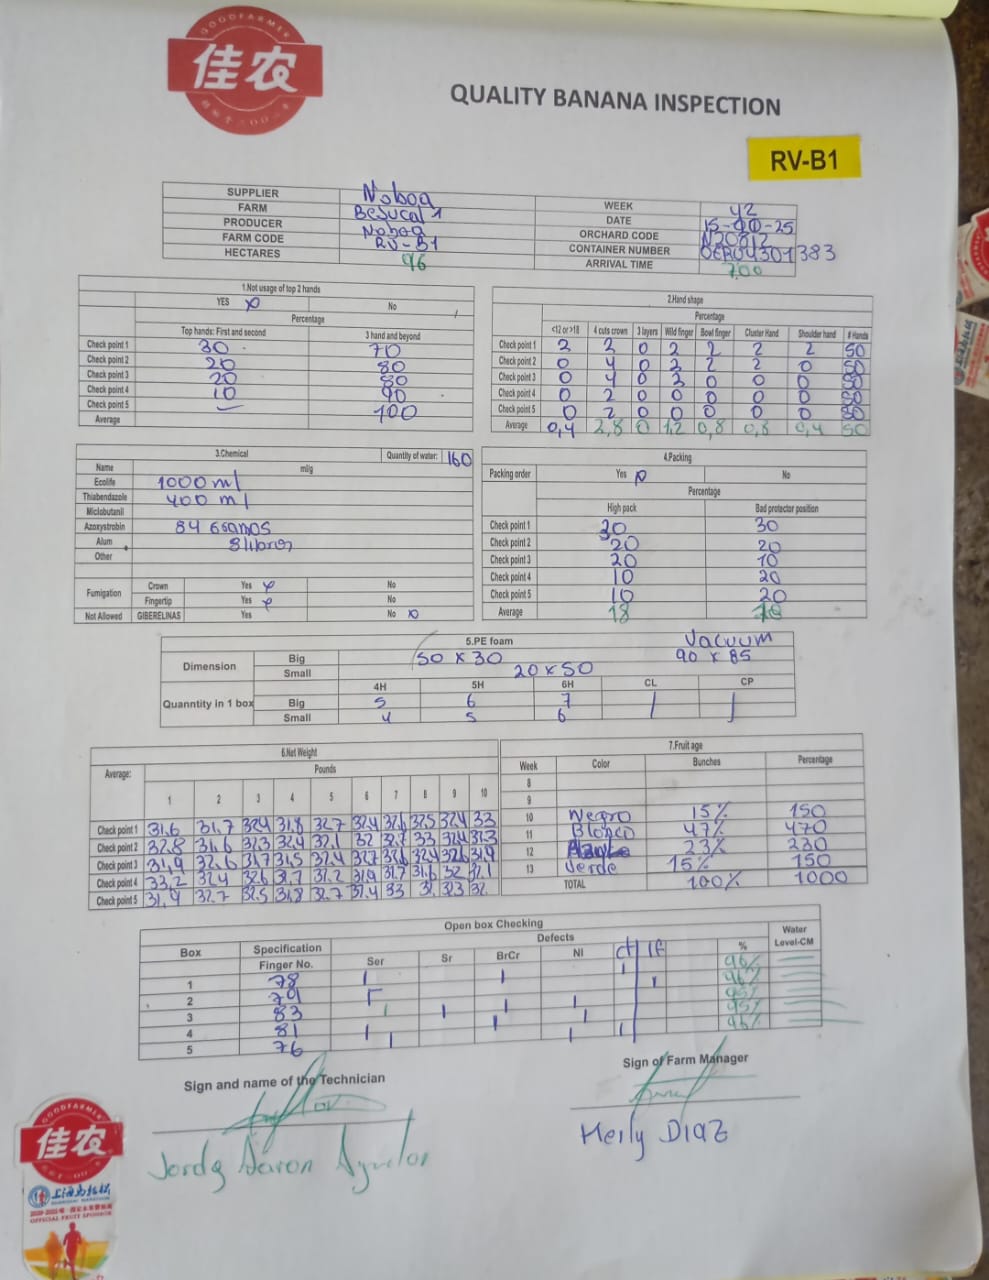 GOODFARMER
佳农
QUALITY BANANA INSPECTION
RV-B1
SUPPLIER Noboa WEEK 42
FARM Bejucal 1 DATE 15-10-25
PRODUCER Noboa ORCHARD CODE N20812
FARM CODE RV-B1 CONTAINER NUMBER OERU4301383
HECTARES 96 ARRIVAL TIME 7:00
1.Not usage of top 2 hands
YES x No /
Percentage
Top hands: First and second 3 hand and beyond
Check point 1 30 70
Check point 2 20 80
Check point 3 20 80
Check point 4 10 90
Check point 5 — 100
Average
2.Hand shape
Percentage
<12 or >18 4 cuts crown 3 layers Wild finger Bowl finger Cluster Hand Shoulder hand # Hands
Check point 1 2 2 0 2 2 2 2 50
Check point 2 0 4 0 3 2 2 0 50
Check point 3 0 4 0 3 0 0 0 50
Check point 4 0 2 0 0 0 0 0 50
Check point 5 0 2 0 0 0 0 0 50
Average 0,4 2,8 0 1,2 0,8 0,8 0,4 50
3.Chemical Quantity of water: 160
Name ml/g
Ecolife 1000 ml
Thiabendazole 400 ml
Miclobutanil
Azoxystrobin 84 gramos
Alum 8 libras
Other
Fumigation Crown Yes x No
Fingertip Yes x No
Not Allowed GIBERELINAS Yes No x
4.Packing
Packing order Yes x No
Percentage
High pack Bad protector position
Check point 1 20 30
Check point 2 20 20
Check point 3 20 10
Check point 4 10 20
Check point 5 10 20
Average 18
5.PE foam Vacuum
Dimension Big 50 x 30 90 x 85
Small 20 x 50
4H 5H 6H CL CP
Quanntity in 1 box Big 5 6 7 / /
Small 4 5 6
6.Net Weight
Average: Pounds
1 2 3 4 5 6 7 8 9 10
Check point 1 31,6 31,7 32,4 31,8 32,7 32,4 32,6 32,5 32,4 33
Check point 2 32,8 31,6 32,3 32,4 32,1 32 32,7 33 32,4 31,3
Check point 3 31,9 32,6 31,7 31,5 32,4 32,7 32,4 32,6 31,9
Check point 4 33,2 32,4 32,6 31,7 31,2 31,9 31,7 31,6 32 32,1
Check point 5 31,9 32,7 32,5 31,8 32,7 33 32
7.Fruit age
Week Color Bunches Percentage
8
9
10 Negro 15% 150
11 Blanco 47% 470
12 23% 230
13 Verde 15% 150
TOTAL 100% 1000
Open box Checking
Box Specification Defects Water
Finger No. Ser Sr BrCr NI Ct lf % Level-CM
1 78 96%
2 79 96%
3 83 95%
4 81 95%
5 76 96%
Sign and name of the Technician
Sign of Farm Manager
Jordy Aaron
Meily DIAZ
GOODFARMER
佳农
OFFICIAL FRUIT SPONSOR